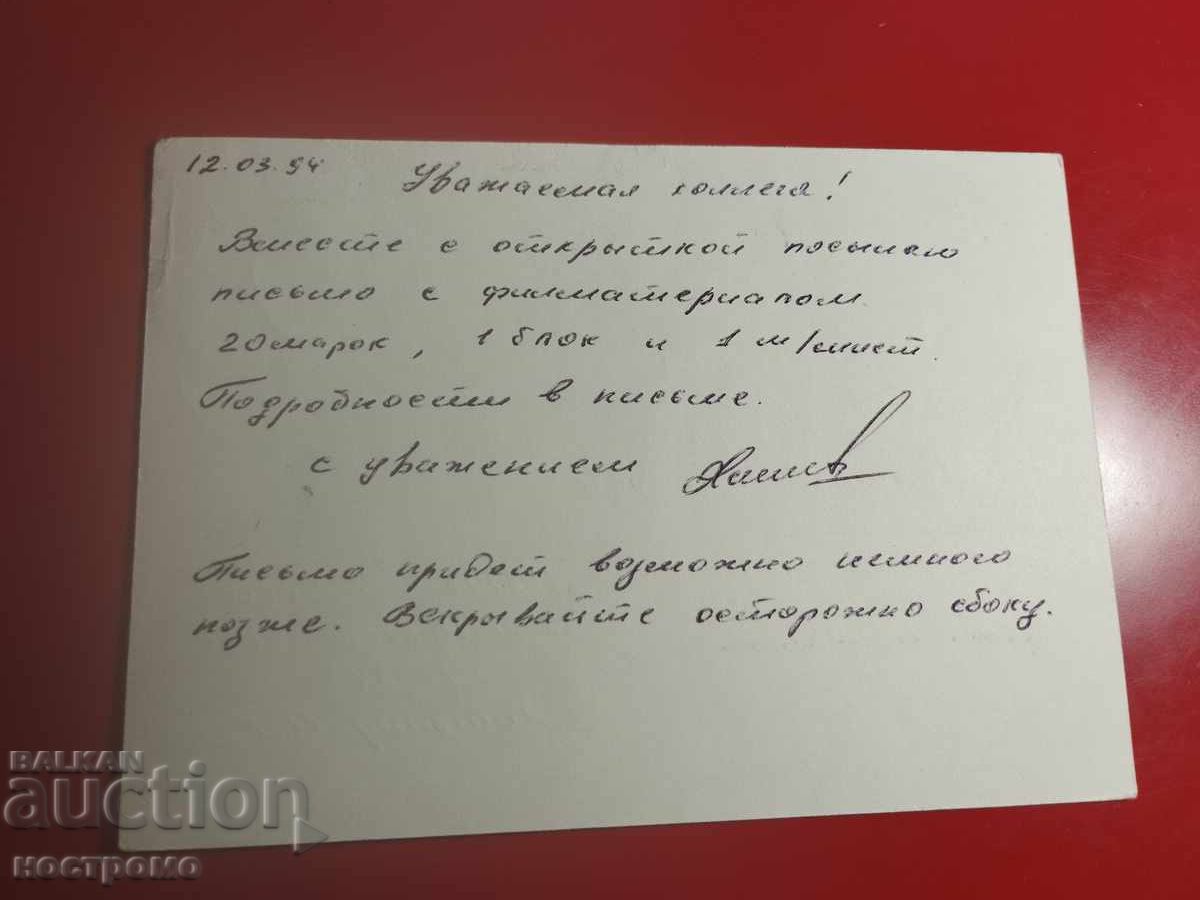 12.03.94
Уважаемая коллега!
Вместе с открыткой посылаю
письмо с филматериалом.
20 марок, 1 блок и 1 м/лист.
Подробности в письме.
с уважением
Письмо придет возможно немного
позже. Вскрывайте осторожно сбоку.
BALKAN
auction
ностромо